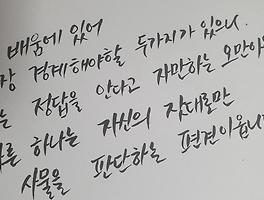 배움에 있어
장 경계해야할 두가지가 있으니
는 정답을 안다고 자만하는 오만이
른 하나는 자신의 잣대로만
사물을 판단하는 편견이옵니